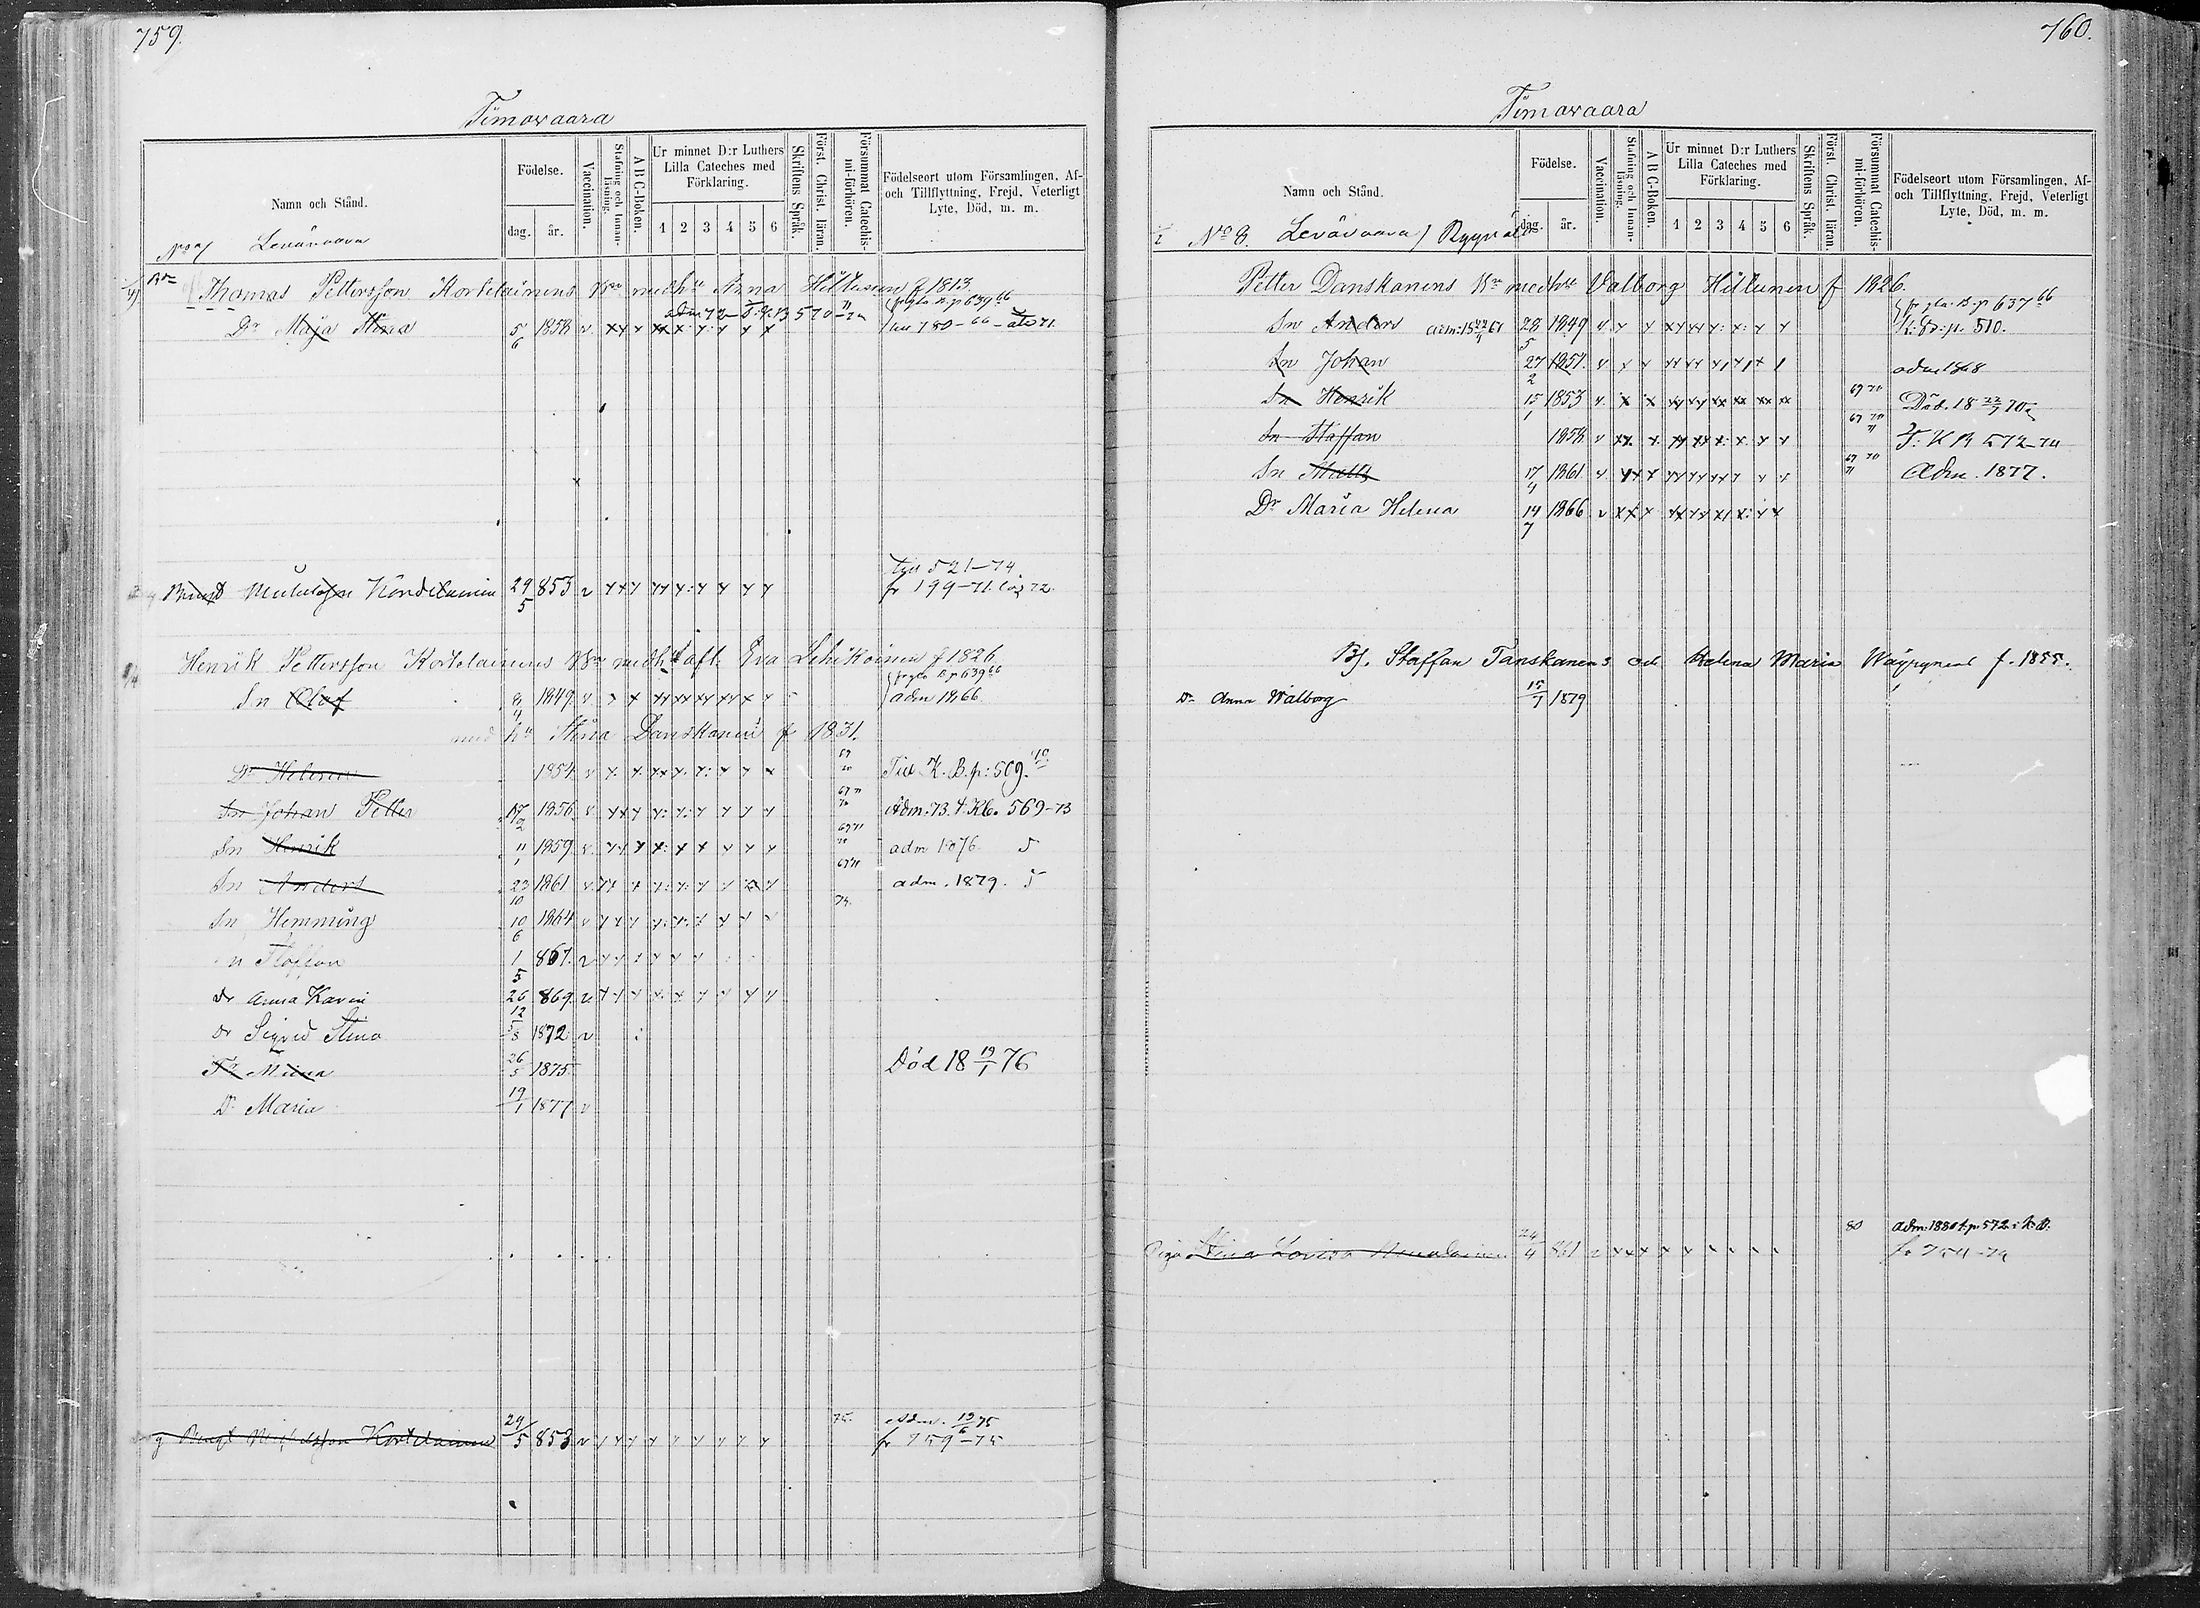 759.
Timovaara
Namn och Stånd.
Födelse.
dag.
år.
Vaccination.
Stafning och Innanläsning.
A B C-Boken.
Ur minnet D:r Luthers Lilla Cateches med Förklaring.
1 2 3 4 5 6
Skriftens Språk.
Först. Christ. läran.
Försummat Catechismi-förhören.
Födelseort utom Församlingen, Af- och Tillflyttning, Frejd, Veterligt Lyte, Död, m. m.
Levävaara
Thomas Pettersson Kortelainens Bn med h:u Anna Hiltunen f 1813.
Dr Maja Stina 5/6 1858 v
Kortelainen 29/5 853 v fr 199-71. 72.
till 521-74
Henrik Pettersson Kortelainens Bn med h:u afl. Eva Lehikoinen f 1826.
Sn Olof 8/4 1849. v adm 1866.
med hu Stina Danskanen f 1831.
Dr Helena 1854 v Till K. B. p: 509.
Sn Johan Petter 17/2 1856. v Adm: 73. t. Kb. 569-73
Sn Henrik 11/1 1859. v adm 1876. 5
Sn Anders 23/10 1861 v adm. 1879. 5
Sn Hemming 10/6 1864 v
n Staffan 1/5 867. v
dr Anna Karin 26/12 869. v
dr Sigrid Stina 5/8 1872 v
Dr Miina 26/5 1875 Död 18 19/1 76
Dr Maria 19/1 1877 v
Bengt Kortelainen 29/5 853 v 75. Adm. 13/6 75
fr 759-75
760.
Timovaara
Namn och Stånd.
Födelse.
dag.
år.
Vaccination.
Stafning och Innanläsning.
A B C-Boken.
Ur minnet D:r Luthers Lilla Cateches med Förklaring.
1 2 3 4 5 6
Skriftens Språk.
Först. Christ. läran.
Försummat Catechismi-förhören.
Födelseort utom Församlingen, Af- och Tillflyttning, Frejd, Veterligt Lyte, Död, m. m.
No 8. Levävaara
Petter Danskanens Bn med h:u Valborg Hiltunen f 1826.
Sn Anders 28/5 1849 v fr gla. B. p 637 66
K. B: p. 510.
Sn Johan 27/2 1851. v adm 1868
Sn Henrik 15/1 1853 v 69 70 Död. 18 22/7 70
Sn Staffan 1858 v 69 70 71 T. K B 572-74
Sn Matts 17/4 1861 v 69 70 71 Adm. 1877.
Dr Maria Helena 14/7 1866 v
Bf. Staffan Tanskanens och Helena Maria Wäyrynens f. 1855.
Dr Anna Walborg 15/1 1879
Piga Stina Lovisa 24/4 861 v 80 adm: 1880 t. p. 572 i K. B.
fr 754-79